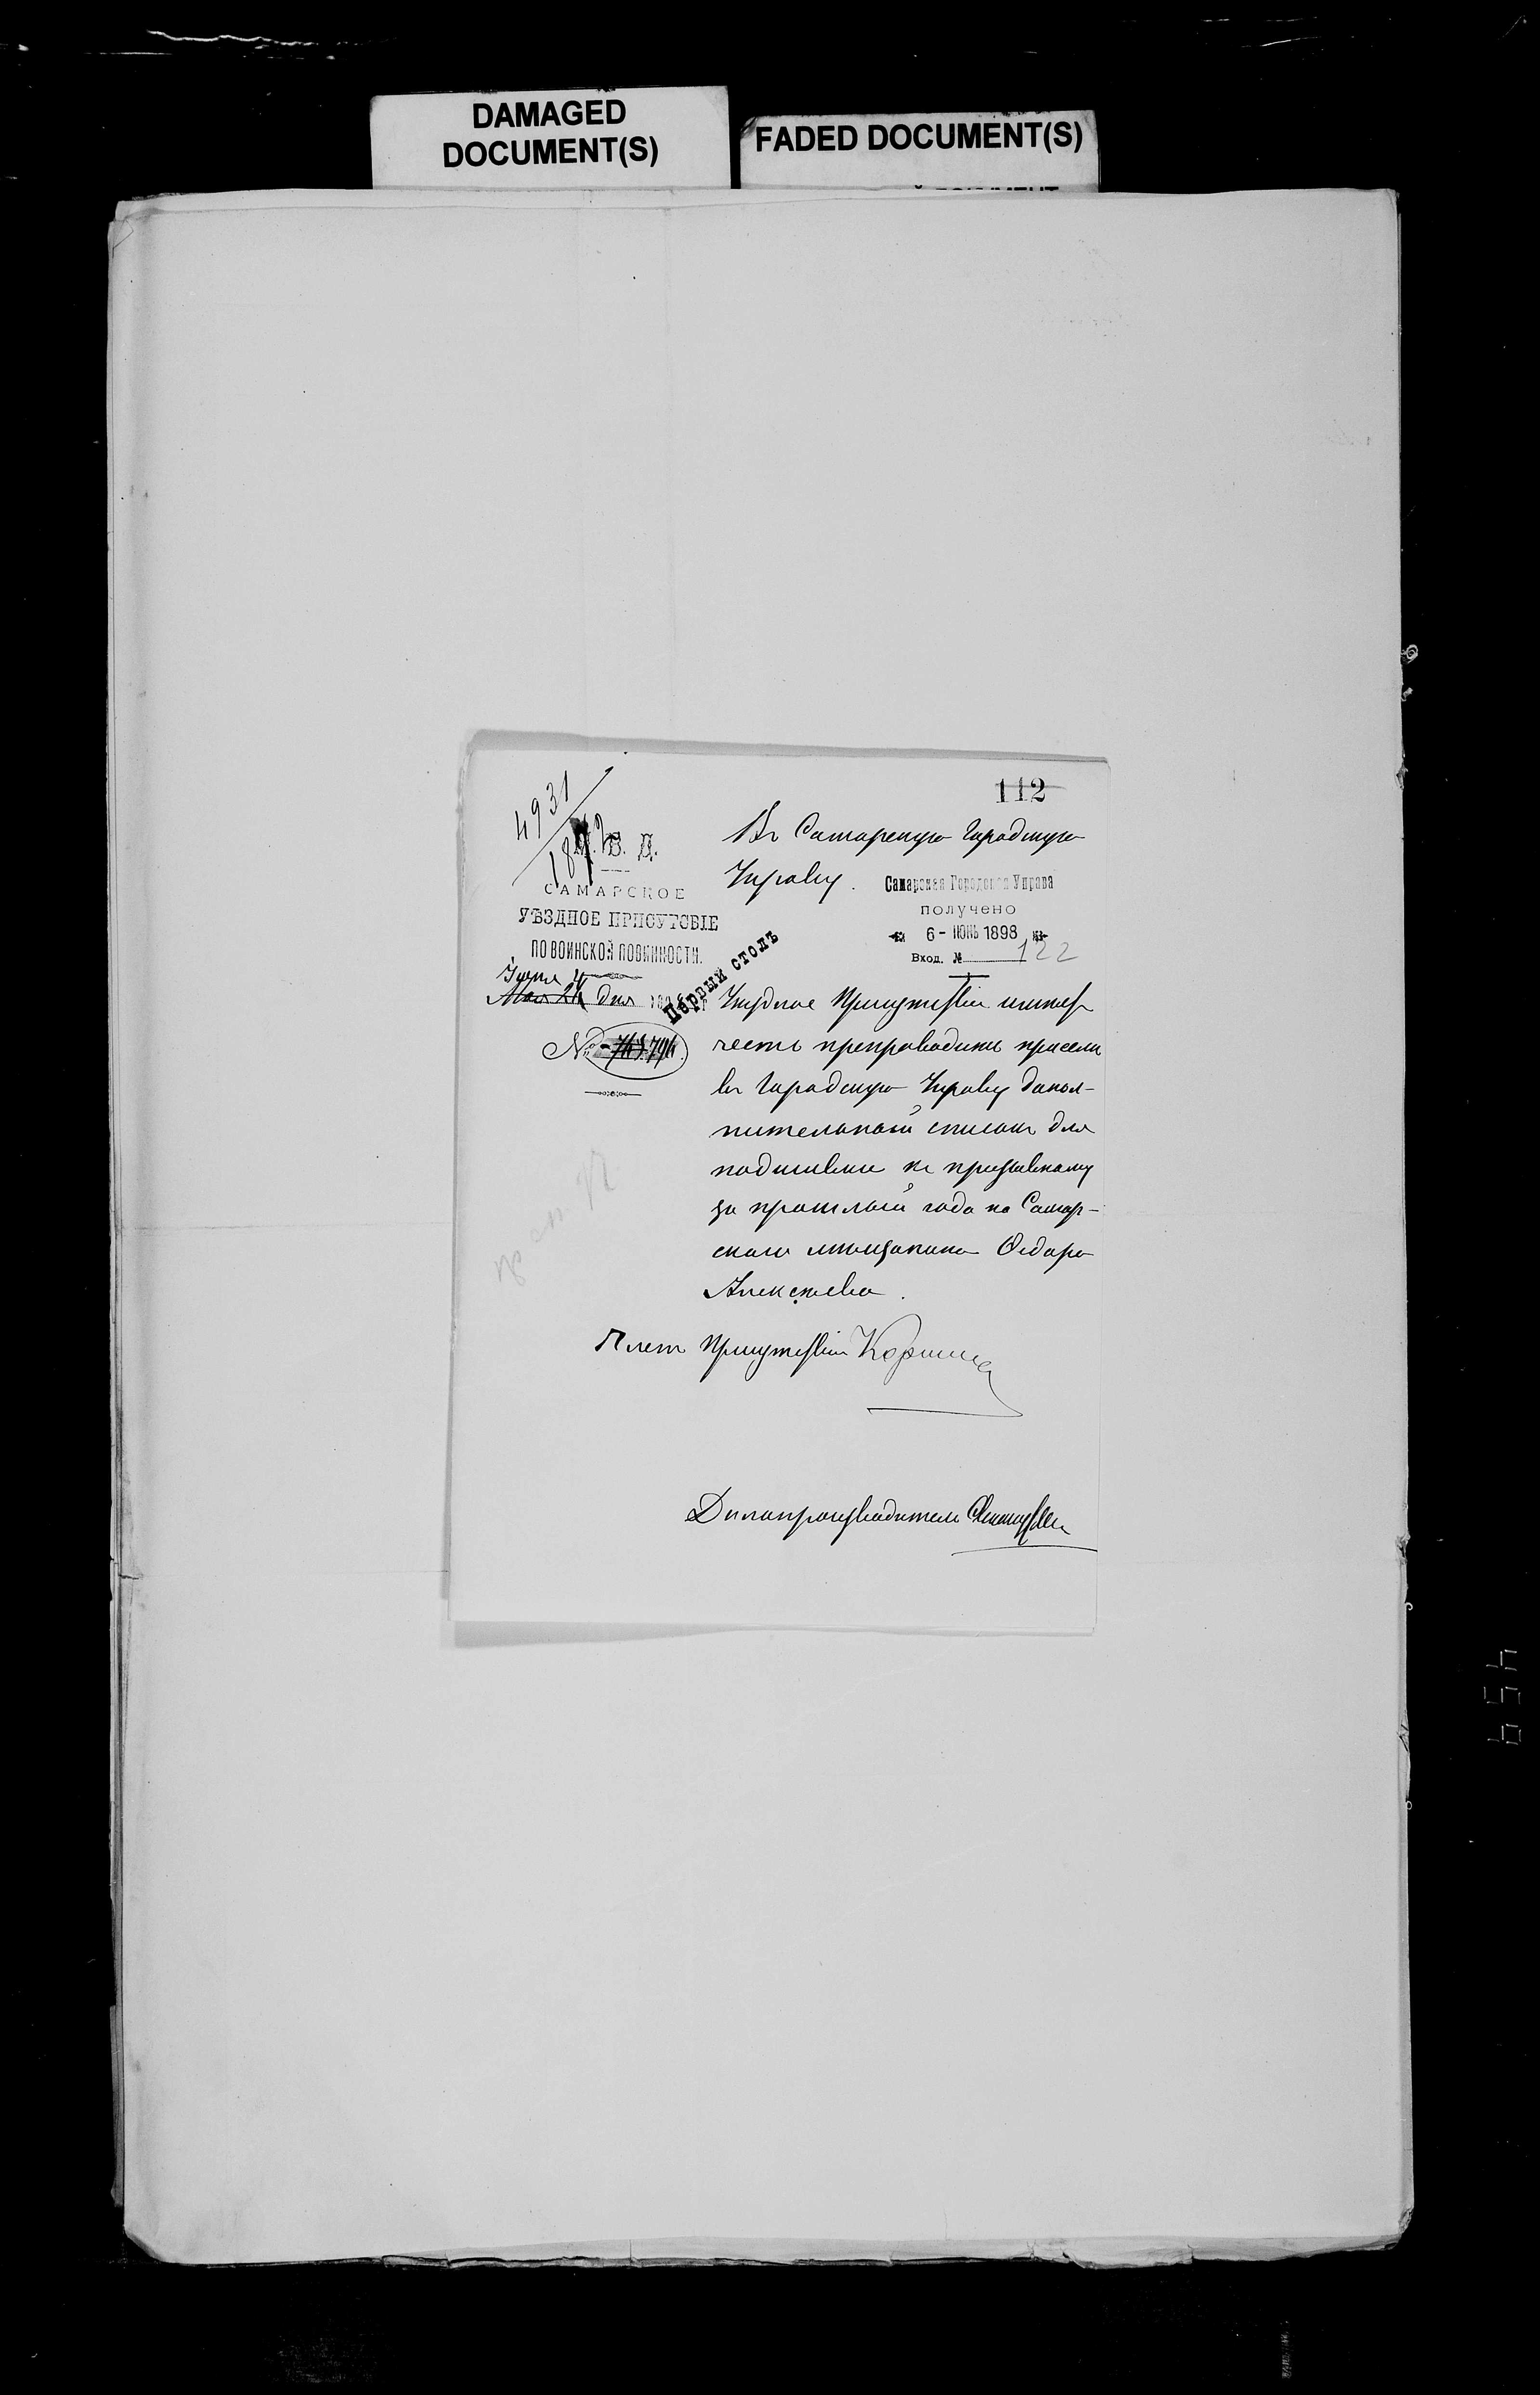 DAMAGED
DOCUMENT(S)
FADED DOCUMENT(S)
112
4931
В. Д.
САМАРСКОЕ
УѢЗДНОЕ ПРИСУТСВІЕ
ПО ВОИНСКОЙ ПОВИННОСТИ.
Іюня 4
Мая 24 дня
Первый столъ
№ 794.
Въ Самарскую Городскую
Управу.
Самарская Городская Управа
получено
6 - ИЮНЬ 1898
Вход. № 122
Уѣздное Присутствіе имѣетъ
честь препроводить при семъ
въ Городскую Управу допол-
нительный списокъ для
подшивки къ призывному
за прошлый годъ на Самар-
скаго мѣщанина Ѳедора
Алексѣева.
Членъ Присутствія
Дѣлопроизводитель
459